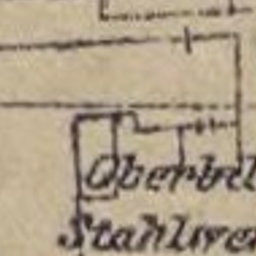 Oberbil
Stahlwer